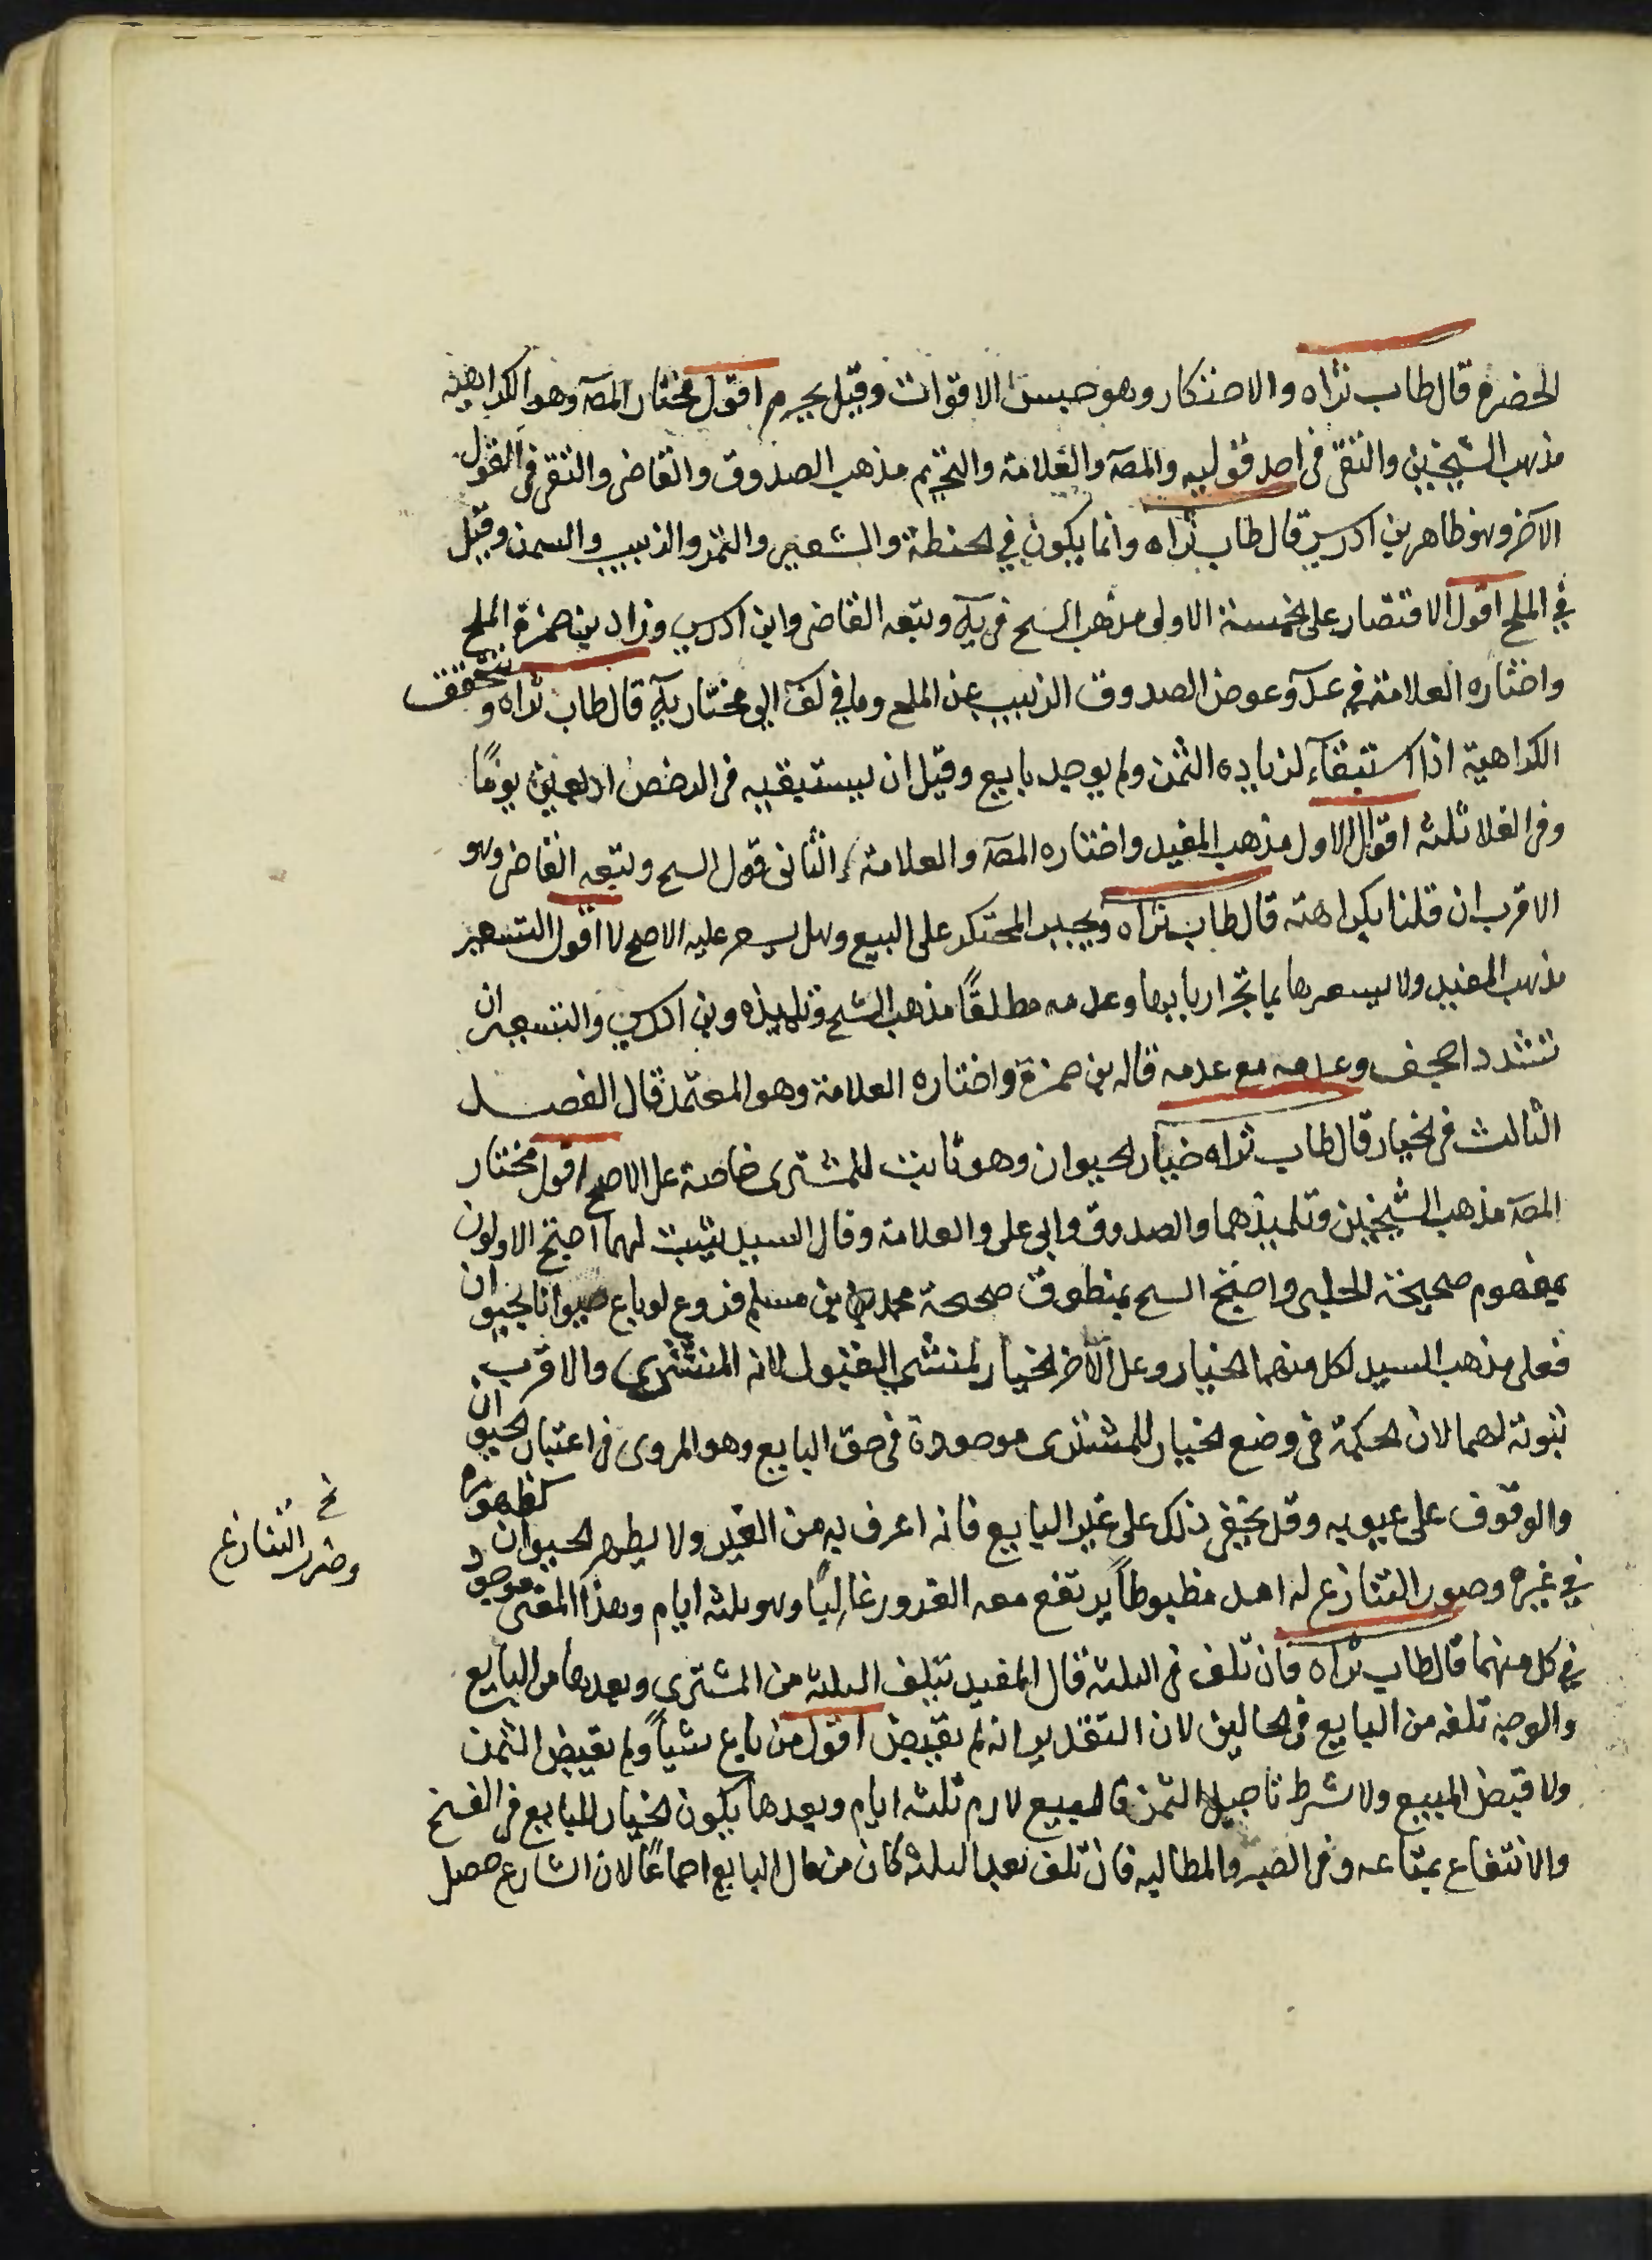 الحضرة قال طاب ثراه والاحتكار وهو حبس الاقوات وقيل يحرم اقول مختار المصه وهو الكراهية
مذهب الشيخين والتقى فى احد قوليه والمصه والعلامة والتحريم مذهب الصدوق والقاضى والتقى فى القول
الآخر وهو ظاهر بن ادريس قال طاب ثراه وانما يكون في الحنطة والشعير والتمر والزبيب والسمن وقيل
في الملح اقول الاقتصار على الخمسة الاولى مذهب الشيخ فى يه وتبعه القاضى وابن ادريس وزاد بن حمزة الملح
واختاره العلامة في عد وعوض الصدوق الزبيب عن الملح وما في لف الى مختار يه قال طاب ثراه وتتحقق
الكراهية اذا استبقاء لزياده الثمن ولم يوجد بايع وقيل ان يستبقيه فى الرخص اربعين يومًا
وفى الغلا ثلثه اقول الاول مذهب المفيد واختاره المصه والعلامة والثانى قول الشيخ وتبعه القاضى وهو
الاقرب ان قلنا بكراهته قال طاب ثراه ويجبر المحتكر على البيع وهل يسعر عليه الاصح لا اقول التسعير
مذهب المفيد ولا يسعرها بما اربابها وعدمه مطلقًا مذهب الشيخ وتلميذه وبن ادريس والتسعير ان
تشدد اجحف وعدمه مع عدمه قاله بن حمزة واختاره العلامة وهو المعتمد قال الفصل
الثالث فى الخيار قال طاب ثراه خيار الحيوان وهو ثابت للمشترى خاصة على الاصح اقول مختار
المصه مذهب الشيخين وتلميذهما والصدوق وابى على والعلامة وقال السيد يثبت لهما احتج الاولون
بمفهوم صحيحة الحلبى واحتج السيد بمنطوق صحيحة محمد بن مسلم فروع لو باع حيوانا بحيوان
فعلى مذهب السيد لكل منهما الخيار وعلى الآخر الخيار لمنشى القبول لانه المشترى والاقرب
ثبوته لهما لان الحكمة فى وضع الخيار للمشترى موجودة فى حق البايع وهو المروى فى اعتبار الحيوان
والوقوف على عيوبه وقد يخفى ذلك على غير البايع فانه اعرف به من الغير ولا يظهر الحيوان كظهوره
في غيره وصور التنازع له امد مظبوطاً يرتفع معه الغرور غالبًا وهو ثلثه ايام وهذا المعنى موجود
في كل منهما قال طاب ثراه فان تلف فى الثلثه قال المفيد تتلف الثلثه من المشترى وبعدها من البايع
والوجه تلفه من البايع فى الحالين لان التقدير انه لم يقبض اقول من باع شيأً ولم يقبض الثمن
ولا قبض المبيع ولا شرط تاجيل الثمن فالبيع لازم ثلثه ايام وبعدها يكون الخيار للبايع فى الفسخ
والانتفاع بمتاعه وفى الصبر والمطالبه فان تلف بعد الثلثه كان من مال البايع اجماعًا لان الشارع جعل
نخ
وضرر التنازع